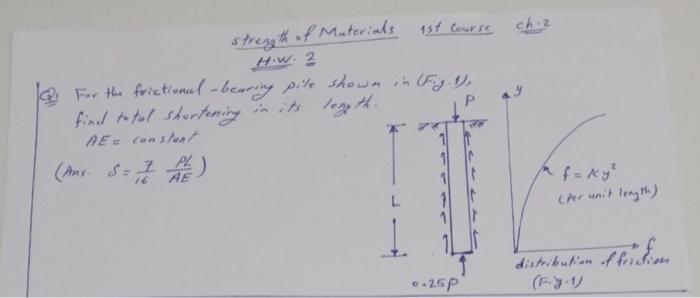 Strength of Materials 1st Course ch.2
H.W. 2
Q1 For the frictional-bearing pile shown in (Fig.1),
find total shortening in its length.
AE = constant
(Ans. δ = 7/16 PL/AE)
P
L
0.25P
y
f = Ky²
(per unit length)
f
distribution of friction
(Fig.1)